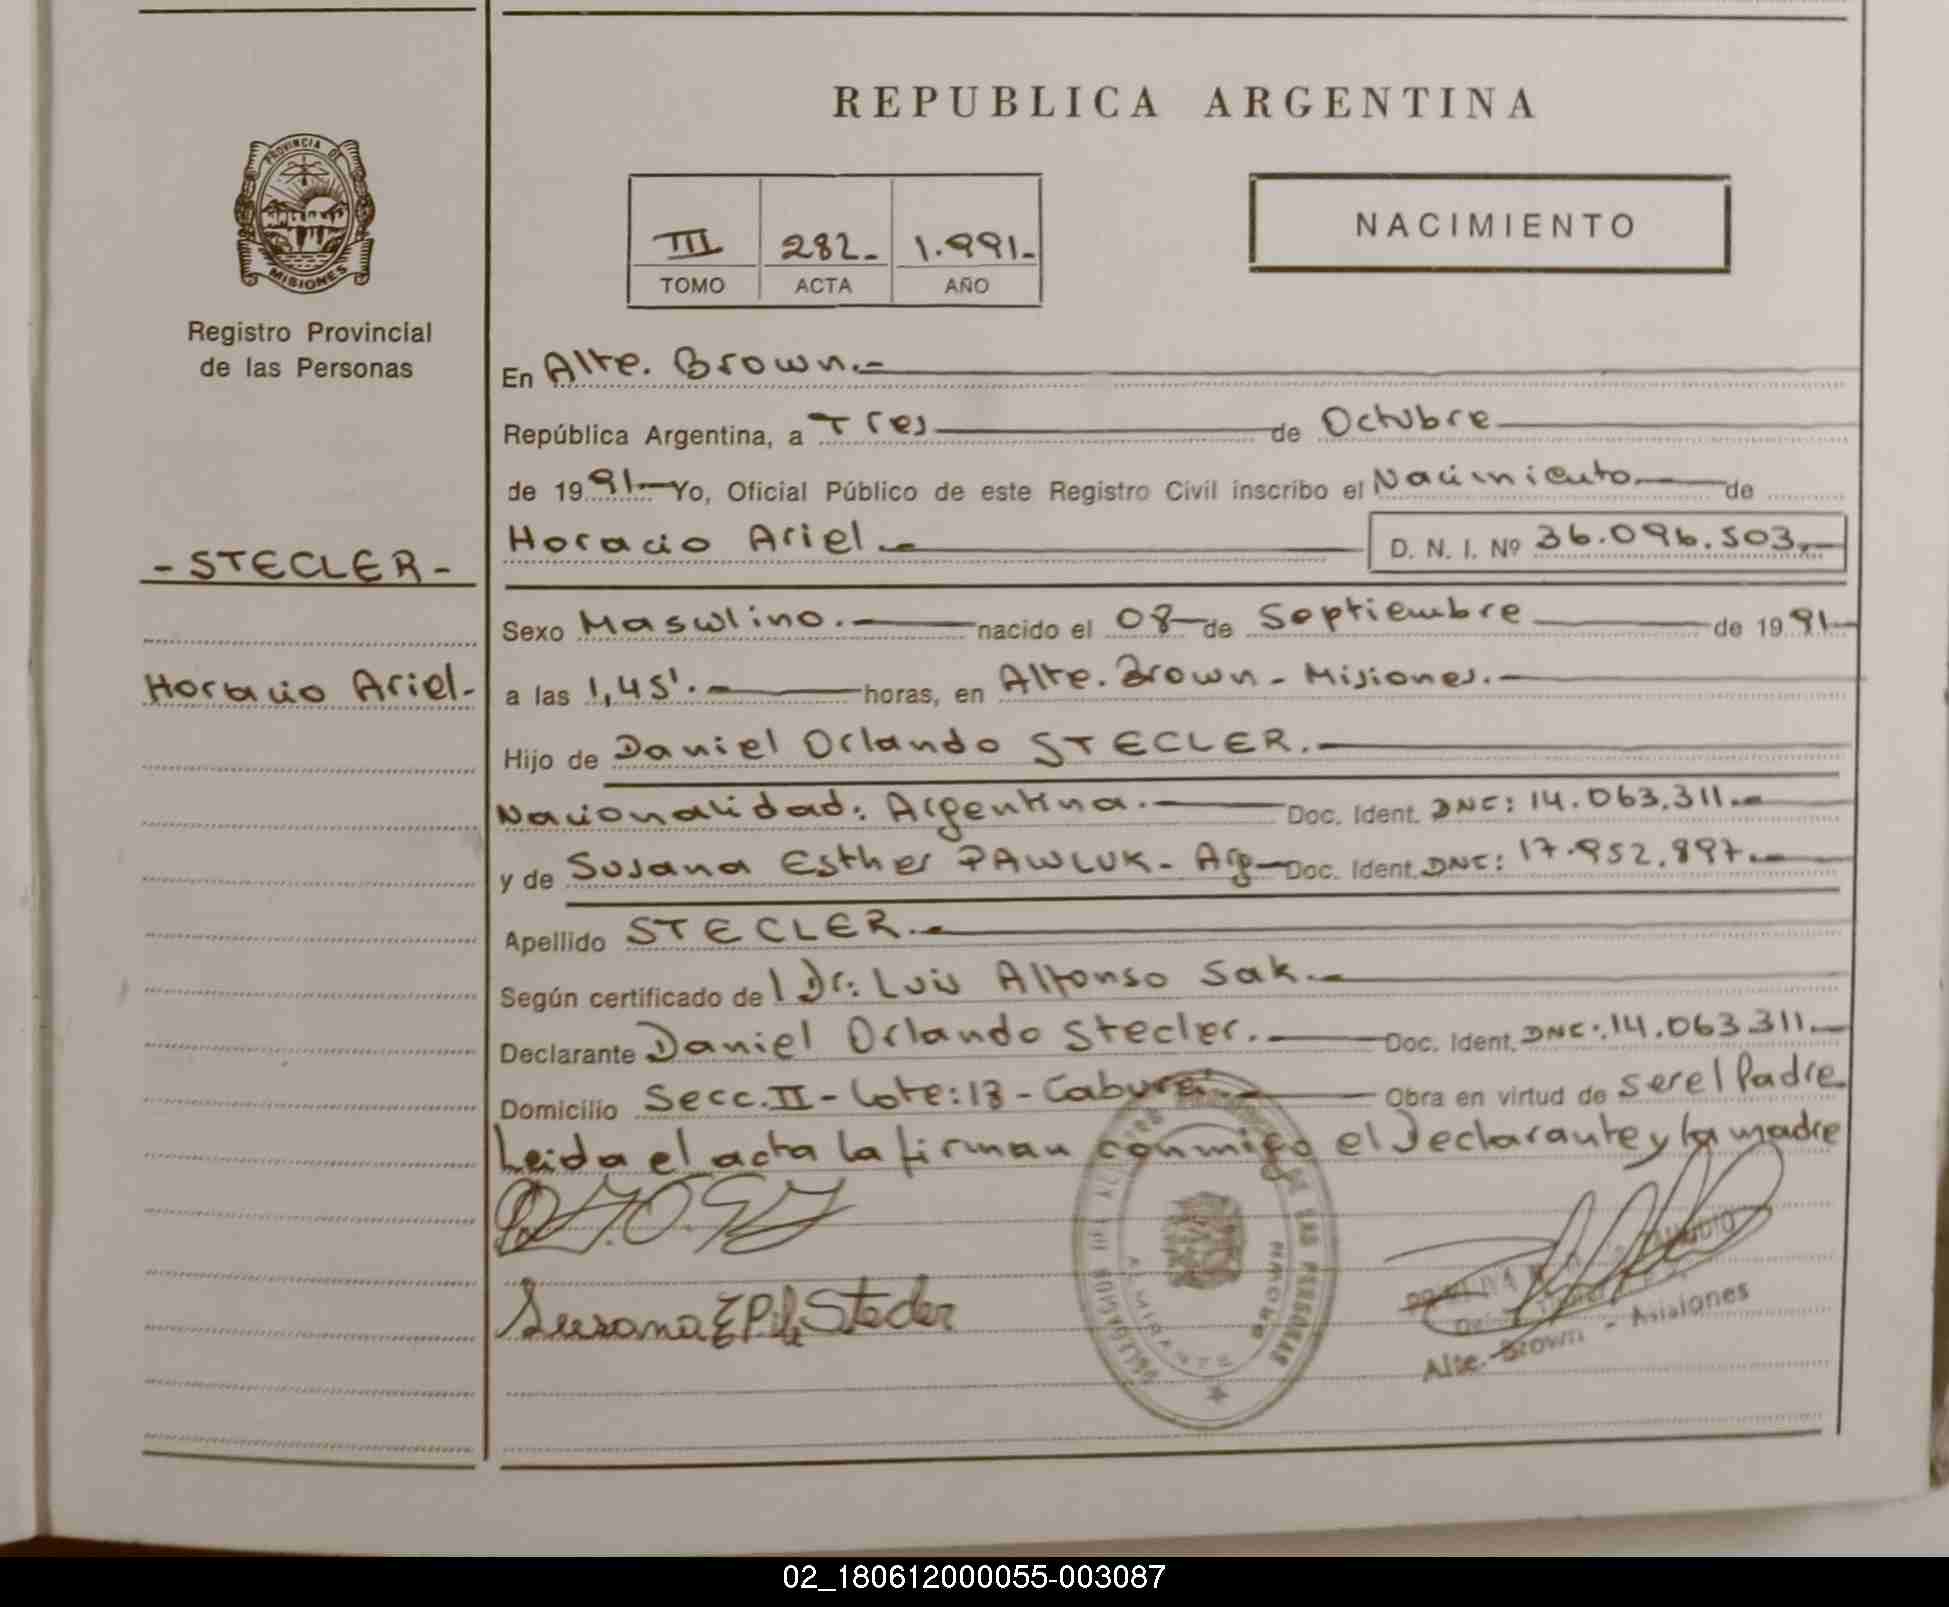 REPUBLICA ARGENTINA
PROVINCIA DE
MISIONES
Registro Provincial
de las Personas
III 282- 1.991-
TOMO ACTA AÑO
NACIMIENTO
En Alte. Brown.-
República Argentina, a Tres de Octubre
de 1991 Yo, Oficial Público de este Registro Civil inscribo el Nacimiento de
Horacio Ariel.- D. N. I. Nº 36.096.503.-
- STECLER -
Horacio Ariel.-
Sexo Masculino. nacido el 08 de Septiembre de 1991
a las 1,45'.- horas, en Alte. Brown - Misiones.-
Hijo de Daniel Orlando STECLER.-
Nacionalidad: Argentina.- Doc. Ident. DNI: 14.063.311.-
y de Susana Esther PAWLUK - Arg- Doc. Ident. DNI: 17.952.897.-
Apellido STECLER.-
Según certificado del Dr: Luis Alfonso Sak.-
Declarante Daniel Orlando Stecler.- Doc. Ident. DNI: 14.063.311.-
Domicilio Secc. II - Lote: 13 - Caburei.- Obra en virtud de ser el Padre
Leida el acta la firman conmigo el Declarante y la madre
Susana E P de Stecler
DE LAS PERSONAS
ALMIRANTE BROWN
Alte. Brown - Misiones
02_180612000055-003087